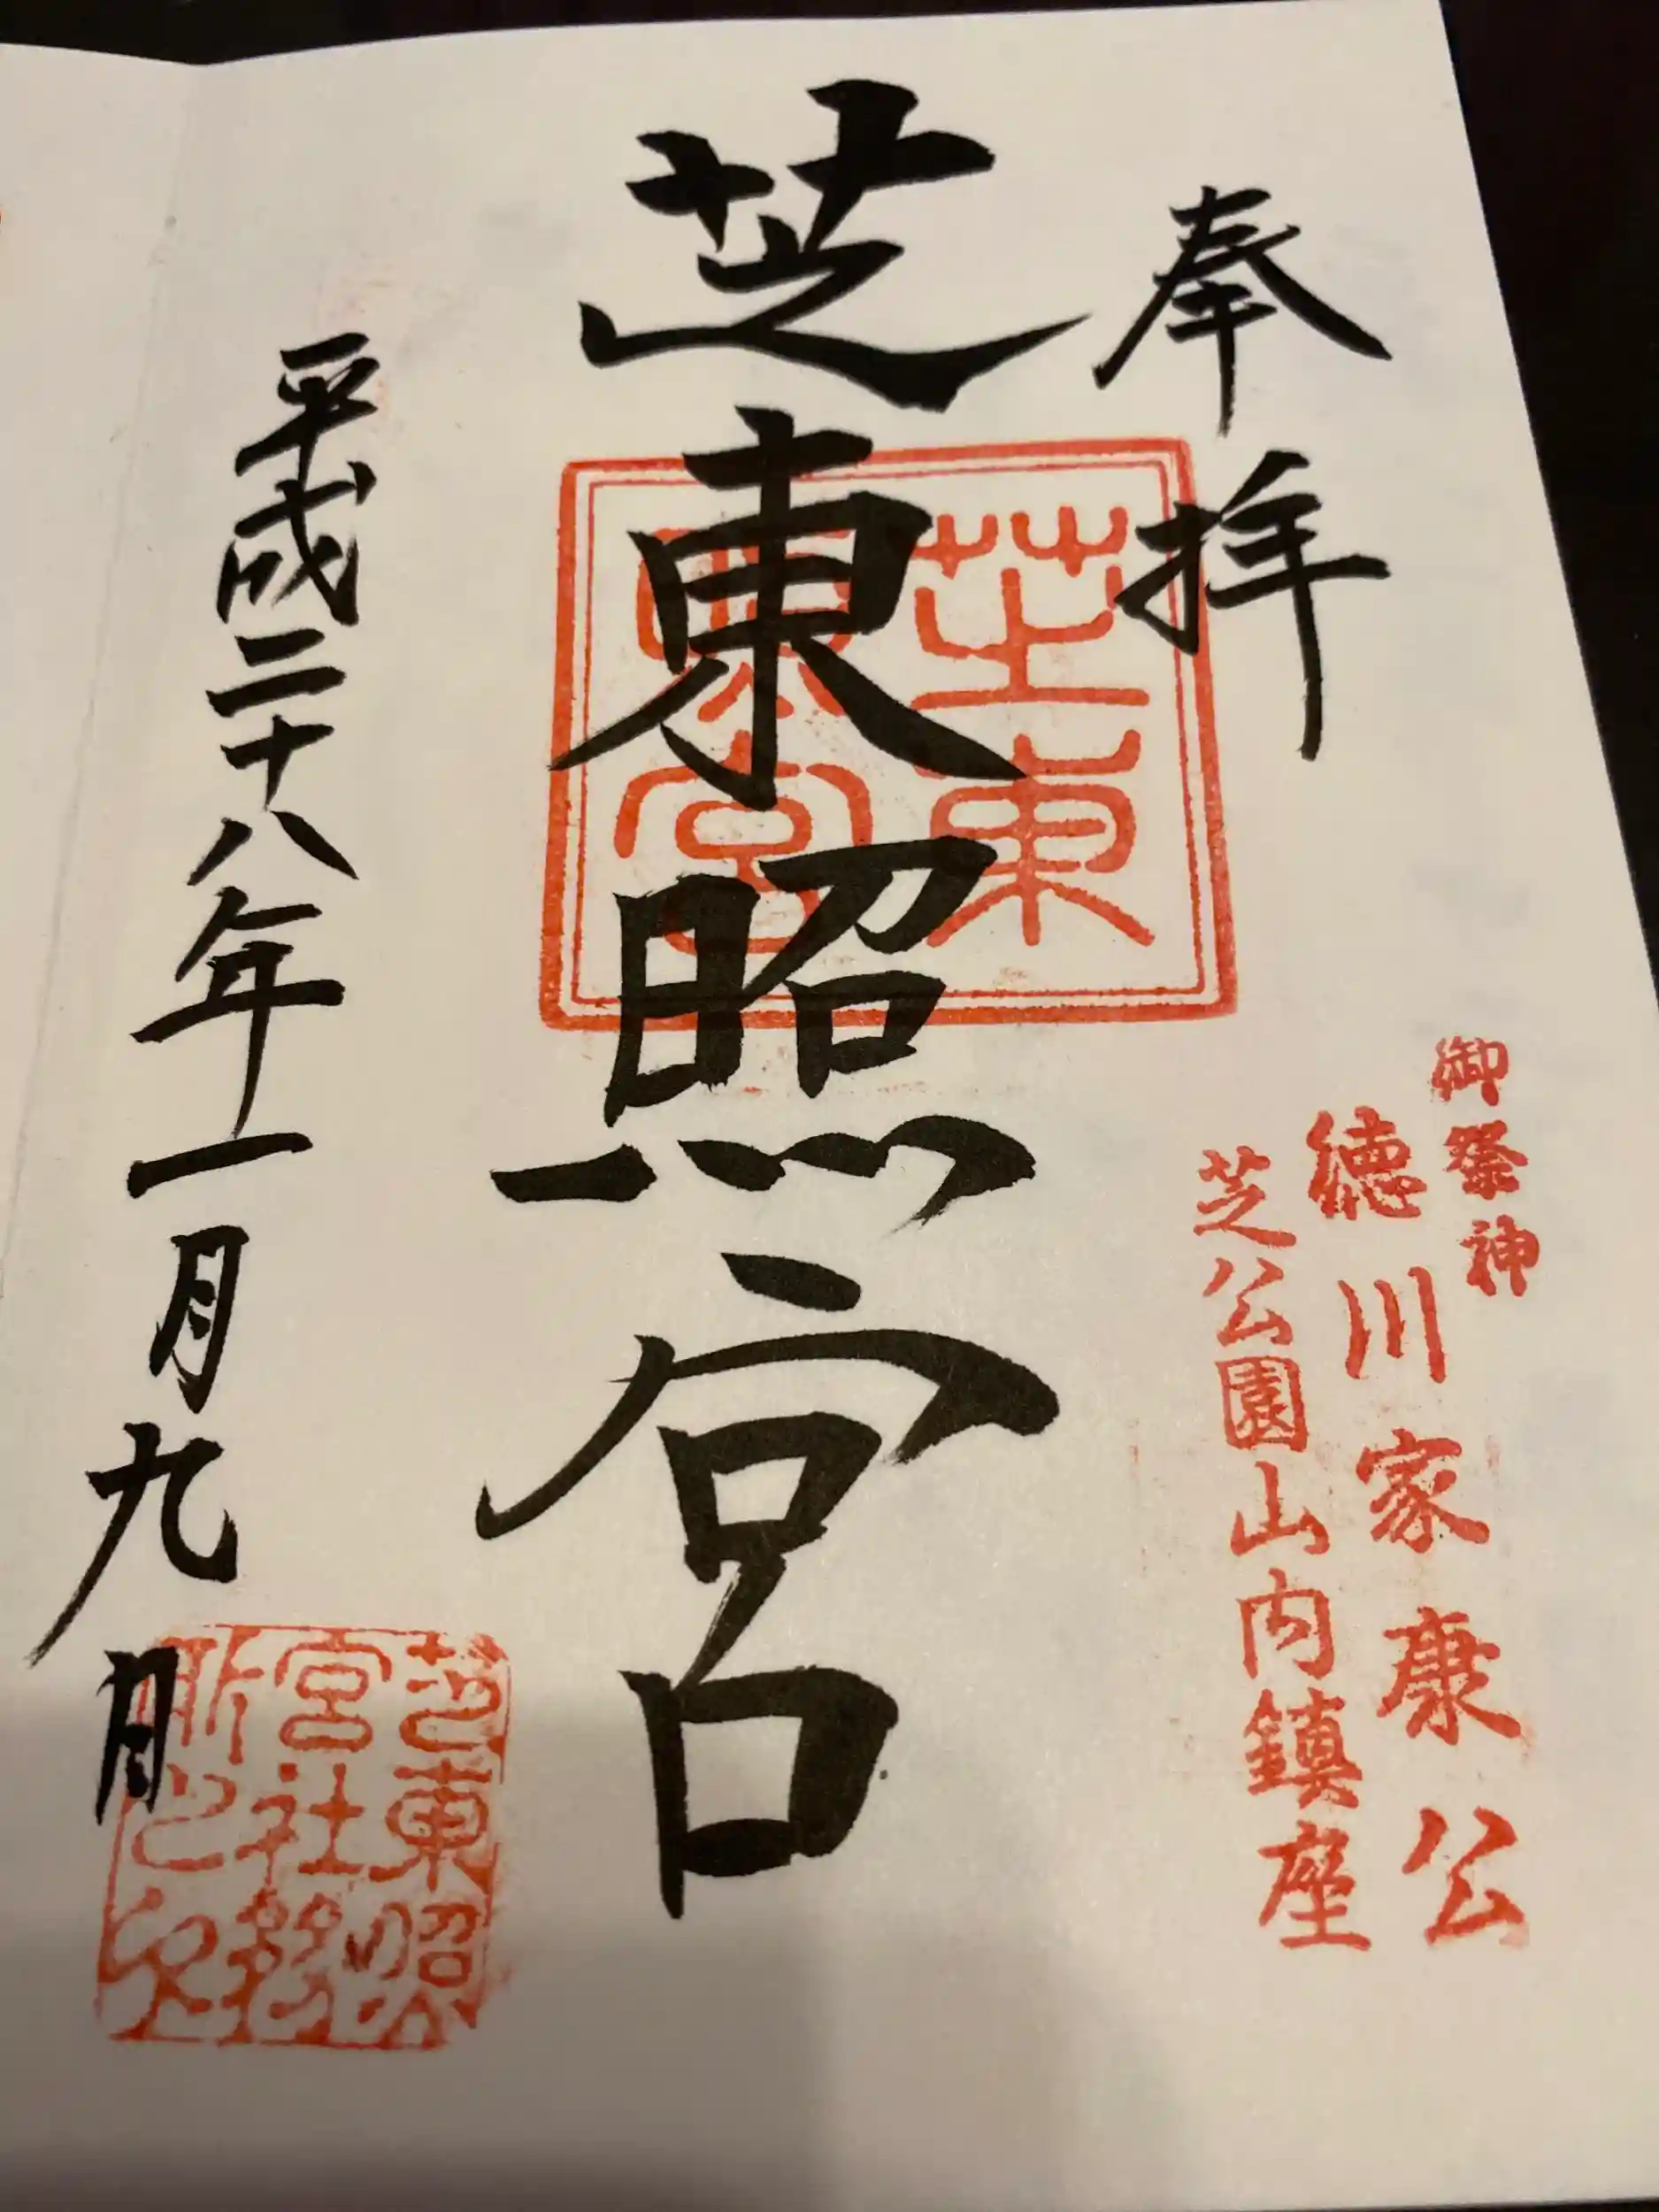 奉拝
御祭神
徳川家康公
芝公園山内鎮座
芝東照宮
芝東
照宮
平成二十八年一月九日
芝東照
宮社務
所之印